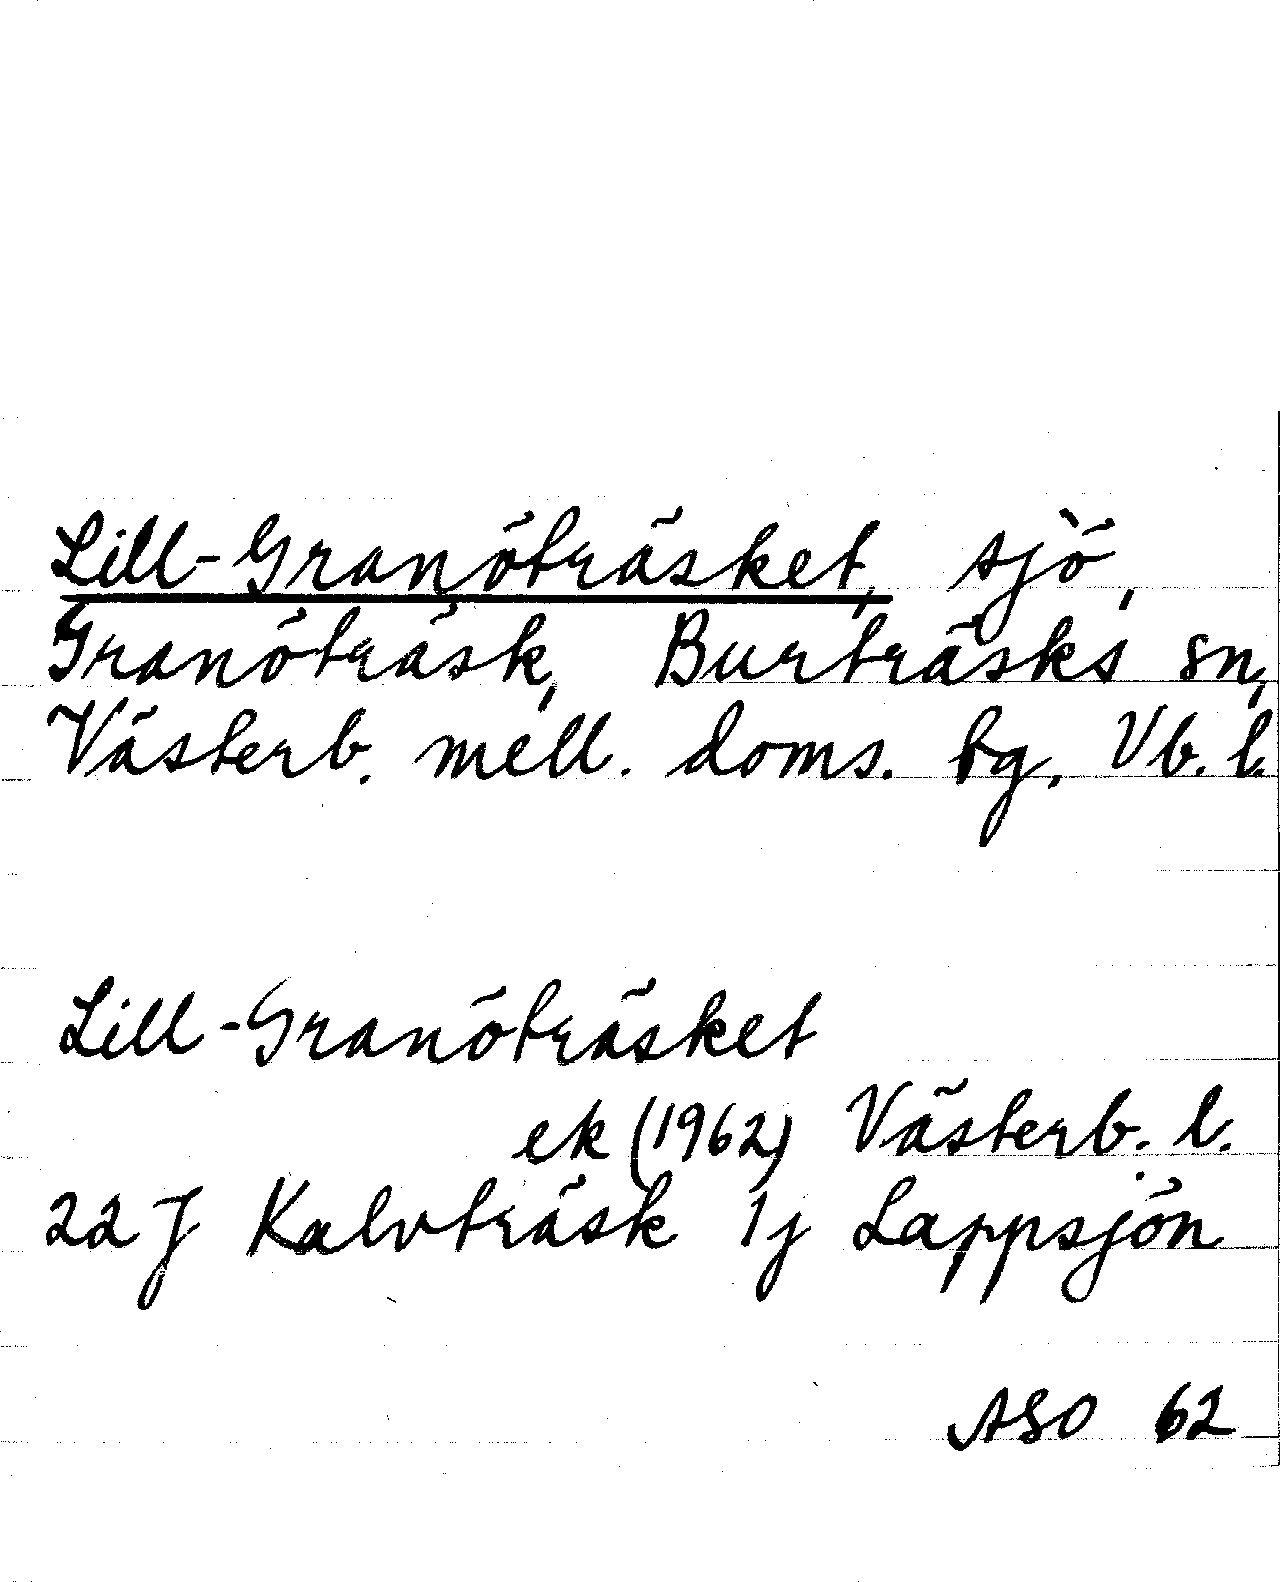 Lill-Granöträsket, sjö,
Granöträsk, Burträsks sn,
Västerb. mell. doms. tg, Vb. l.
Lill-Granöträsket
ek (1962) Västerb. l.
22 J Kalvträsk 1j Lappsjön
ASO 62